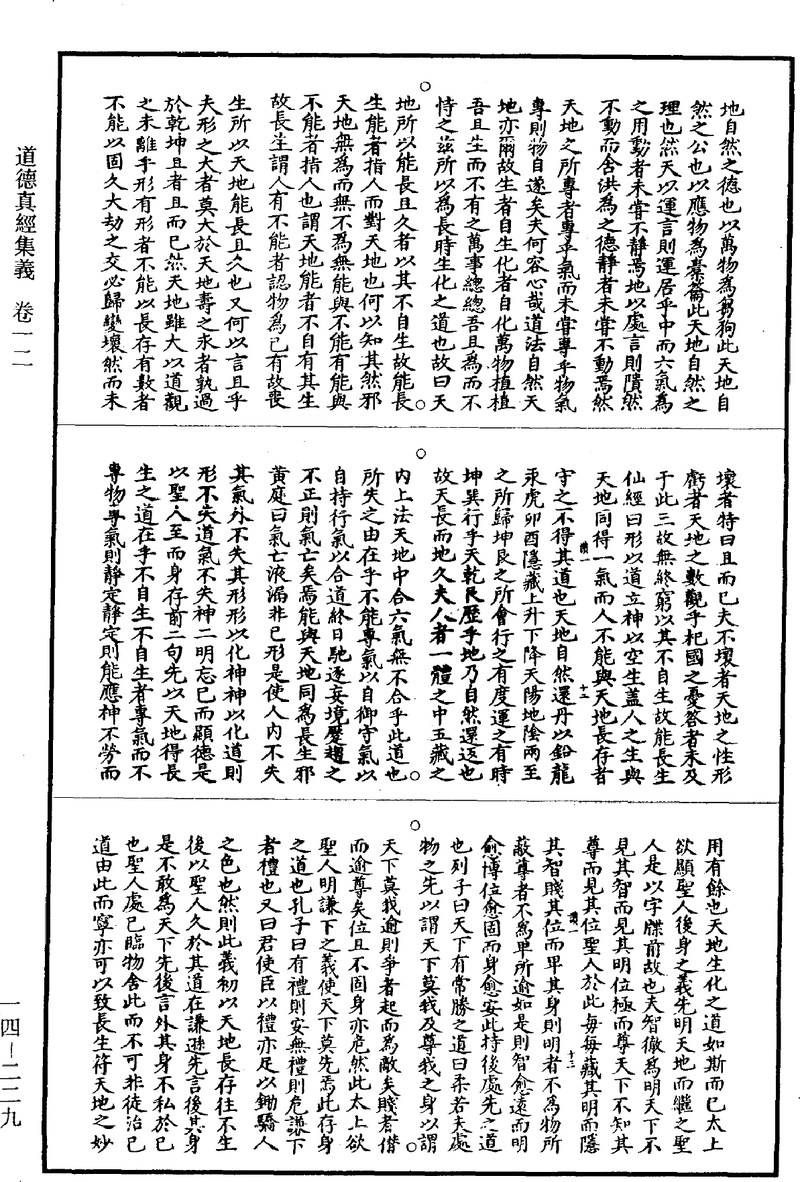 道德真經集義　卷一二
一四—二二九
地自然之德也以萬物為芻狗此天地自
然之公也以應物為橐籥此天地自然之
理也然天以運言則運居乎中而六氣為
之用動者未嘗不靜焉地以處言則隤然
不動而含洪為之德靜者未嘗不動焉然
天地之所專者專乎氣而未嘗專乎物氣
專則物自遂矣夫何容心哉道法自然天
地亦爾故生者自生化者自化萬物植植
吾且生而不有之萬事總總吾且為而不
恃之茲所以為長時生化之道也故曰天
地所以能長且久者以其不自生故能長
生能者指人而對天地也何以知其然邪
天地無為而無不為無能與不能有能與
不能者指人也謂天地能者不自有其生
故長生謂人有不能者認物為已有故喪
生所以天地能長且久也又何以言且乎
夫形之大者莫大於天地壽之永者孰過
於乾坤且者且而已然天地雖大以道觀
之未離乎形有形者不能以長存有數者
不能以固久大劫之交必歸變壞然而未
壞者特曰且而已夫不壞者天地之性形
虧者天地之數觀乎杞國之憂答者未及
于此三故無終窮以其不自生故能長生
仙經曰形以道立神以空生蓋人之生與
天地同得一氣而人不能與天地長存者
守之不得其道也天地自然還丹以鉛龍
汞虎卯酉隱藏上升下降天陽地陰兩至
之所歸坤艮之所會行之有度運之有時
坤巽行乎天乾艮歷乎地乃自然還返也
故天長而地久夫人者一體之中五藏之
內上法天地中合六氣無不合乎此道也
所失之由在乎不能專氣以自御守氣以
自持行氣以合道終日馳逐妄境歷趨之
不正則氣亡矣焉能與天地同為長生邪
黃庭曰氣亡液漏非已形是使人內不失
其氣外不失其形形以化神神以化道則
形不失道氣不失神二明忘已而顯德是
以聖人至而身存前二句先以天地得長
生之道在乎不自生不自生者專氣而不
專物專氣則靜定靜定則能應神不勞而
用有餘也天地生化之道如斯而已太上
欲顯聖人後身之義先明天地而繼之聖
人是以字牒前故也夫智徹為明天下不
見其智而見其明位極而尊天下不知其
尊而見其位聖人於此每每藏其明而隱
其智賤其位而卑其身則明者不為物所
蔽尊者不為卑所逾如是則智愈遠而明
愈博位愈固而身愈安此持後處先之道
也列子曰天下有常勝之道曰柔若夫處
物之先以謂天下莫我及尊我之身以謂
天下莫我逾則爭者起而為敵矣賤者僭
而逾尊矣位且不固身亦危然此太上欲
聖人明謙下之義使天下莫先焉此存身
之道也孔子曰有禮則安無禮則危謙下
者禮也又曰君使臣以禮亦足以鋤驕人
之色也然則此義初以天地長存往不生
後以聖人久於其道在謙遜先言後其身
是不敢為天下先後言外其身不私於已
也聖人處已臨物舍此而不可非徒治已
道由此而寧亦可以致長生符天地之妙